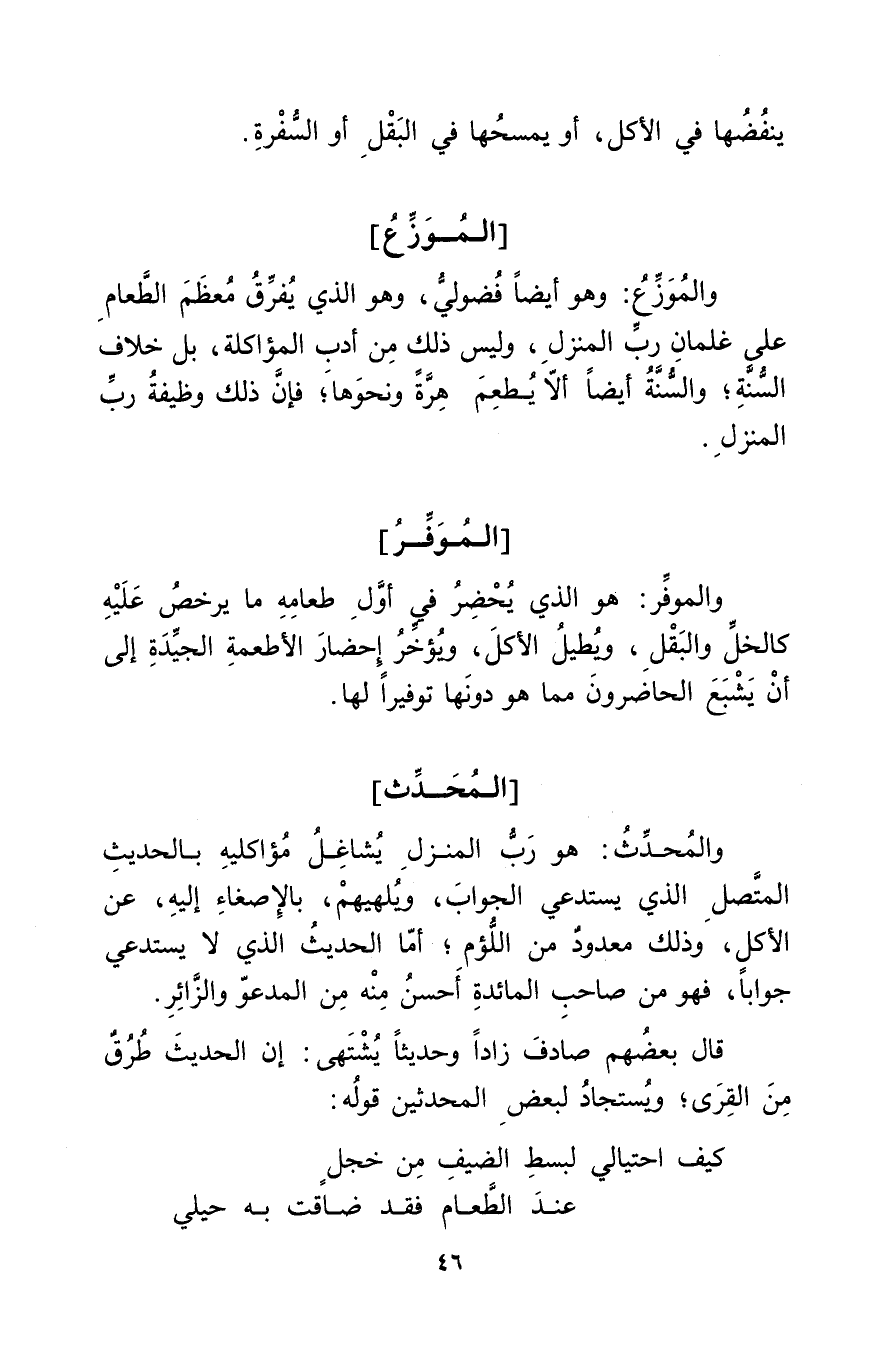 ينفُضُها في الأكل، أو يمسحُها في البَقْلِ أو السُّفْرةِ.
[الـمُــوَزِّعُ]
والمُوَزِّعُ: وهو أيضاً فُضوليٌّ، وهو الذي يُفرِّقُ مُعظَمَ الطَّعامِ
على غلمانِ ربِّ المنزلِ، وليس ذلك مِن أدبِ المؤاكلة، بل خلاف
السُّنَّةِ؛ والسُّنَّةُ أيضاً ألاّ يُـطعِمَ هِرَّةً ونحوَها؛ فإنَّ ذلك وظيفةُ ربِّ
المنزلِ.
[الـمُـوَفِّــرُ]
والموفِّر: هو الذي يُحْضِرُ في أوَّلِ طعامِهِ ما يرخصُ عَلَيْهِ
كالخلِّ والبَقْلِ، ويُطيلُ الأكلَ، ويُؤخِّرُ إحضارَ الأطعمةِ الجيِّدَةِ إلى
أنْ يَشْبَعَ الحاضرونَ مما هو دونَها توفيراً لها.
[الـمُحَــدِّث]
والمُحـدِّثُ: هو رَبُّ المنـزلِ يُشاغِـلُ مُؤاكليهِ بـالحديثِ
المتَّصلِ الذي يستدعي الجوابَ، ويُلهيهمْ، بالإِصغاءِ إليهِ، عن
الأكلِ، وذلك معدودٌ من اللُّؤمِ؛ أمّا الحديثُ الذي لا يستدعي
جواباً، فهو من صاحبِ المائدةِ أَحسنُ مِنْه مِن المدعوّ والزَّائِرِ.
قال بعضُهم صادفَ زاداً وحديثاً يُشْتَهى: إن الحديثَ طُرُقٌ
مِنَ القِرَى؛ ويُستجادُ لبعضِ المحدثين قولُه:
كيف احتيالي لبسطِ الضيفِ مِن خجلٍ
عنـدَ الطَّعـامِ فقـد ضـاقت بـه حيلي
٤٦